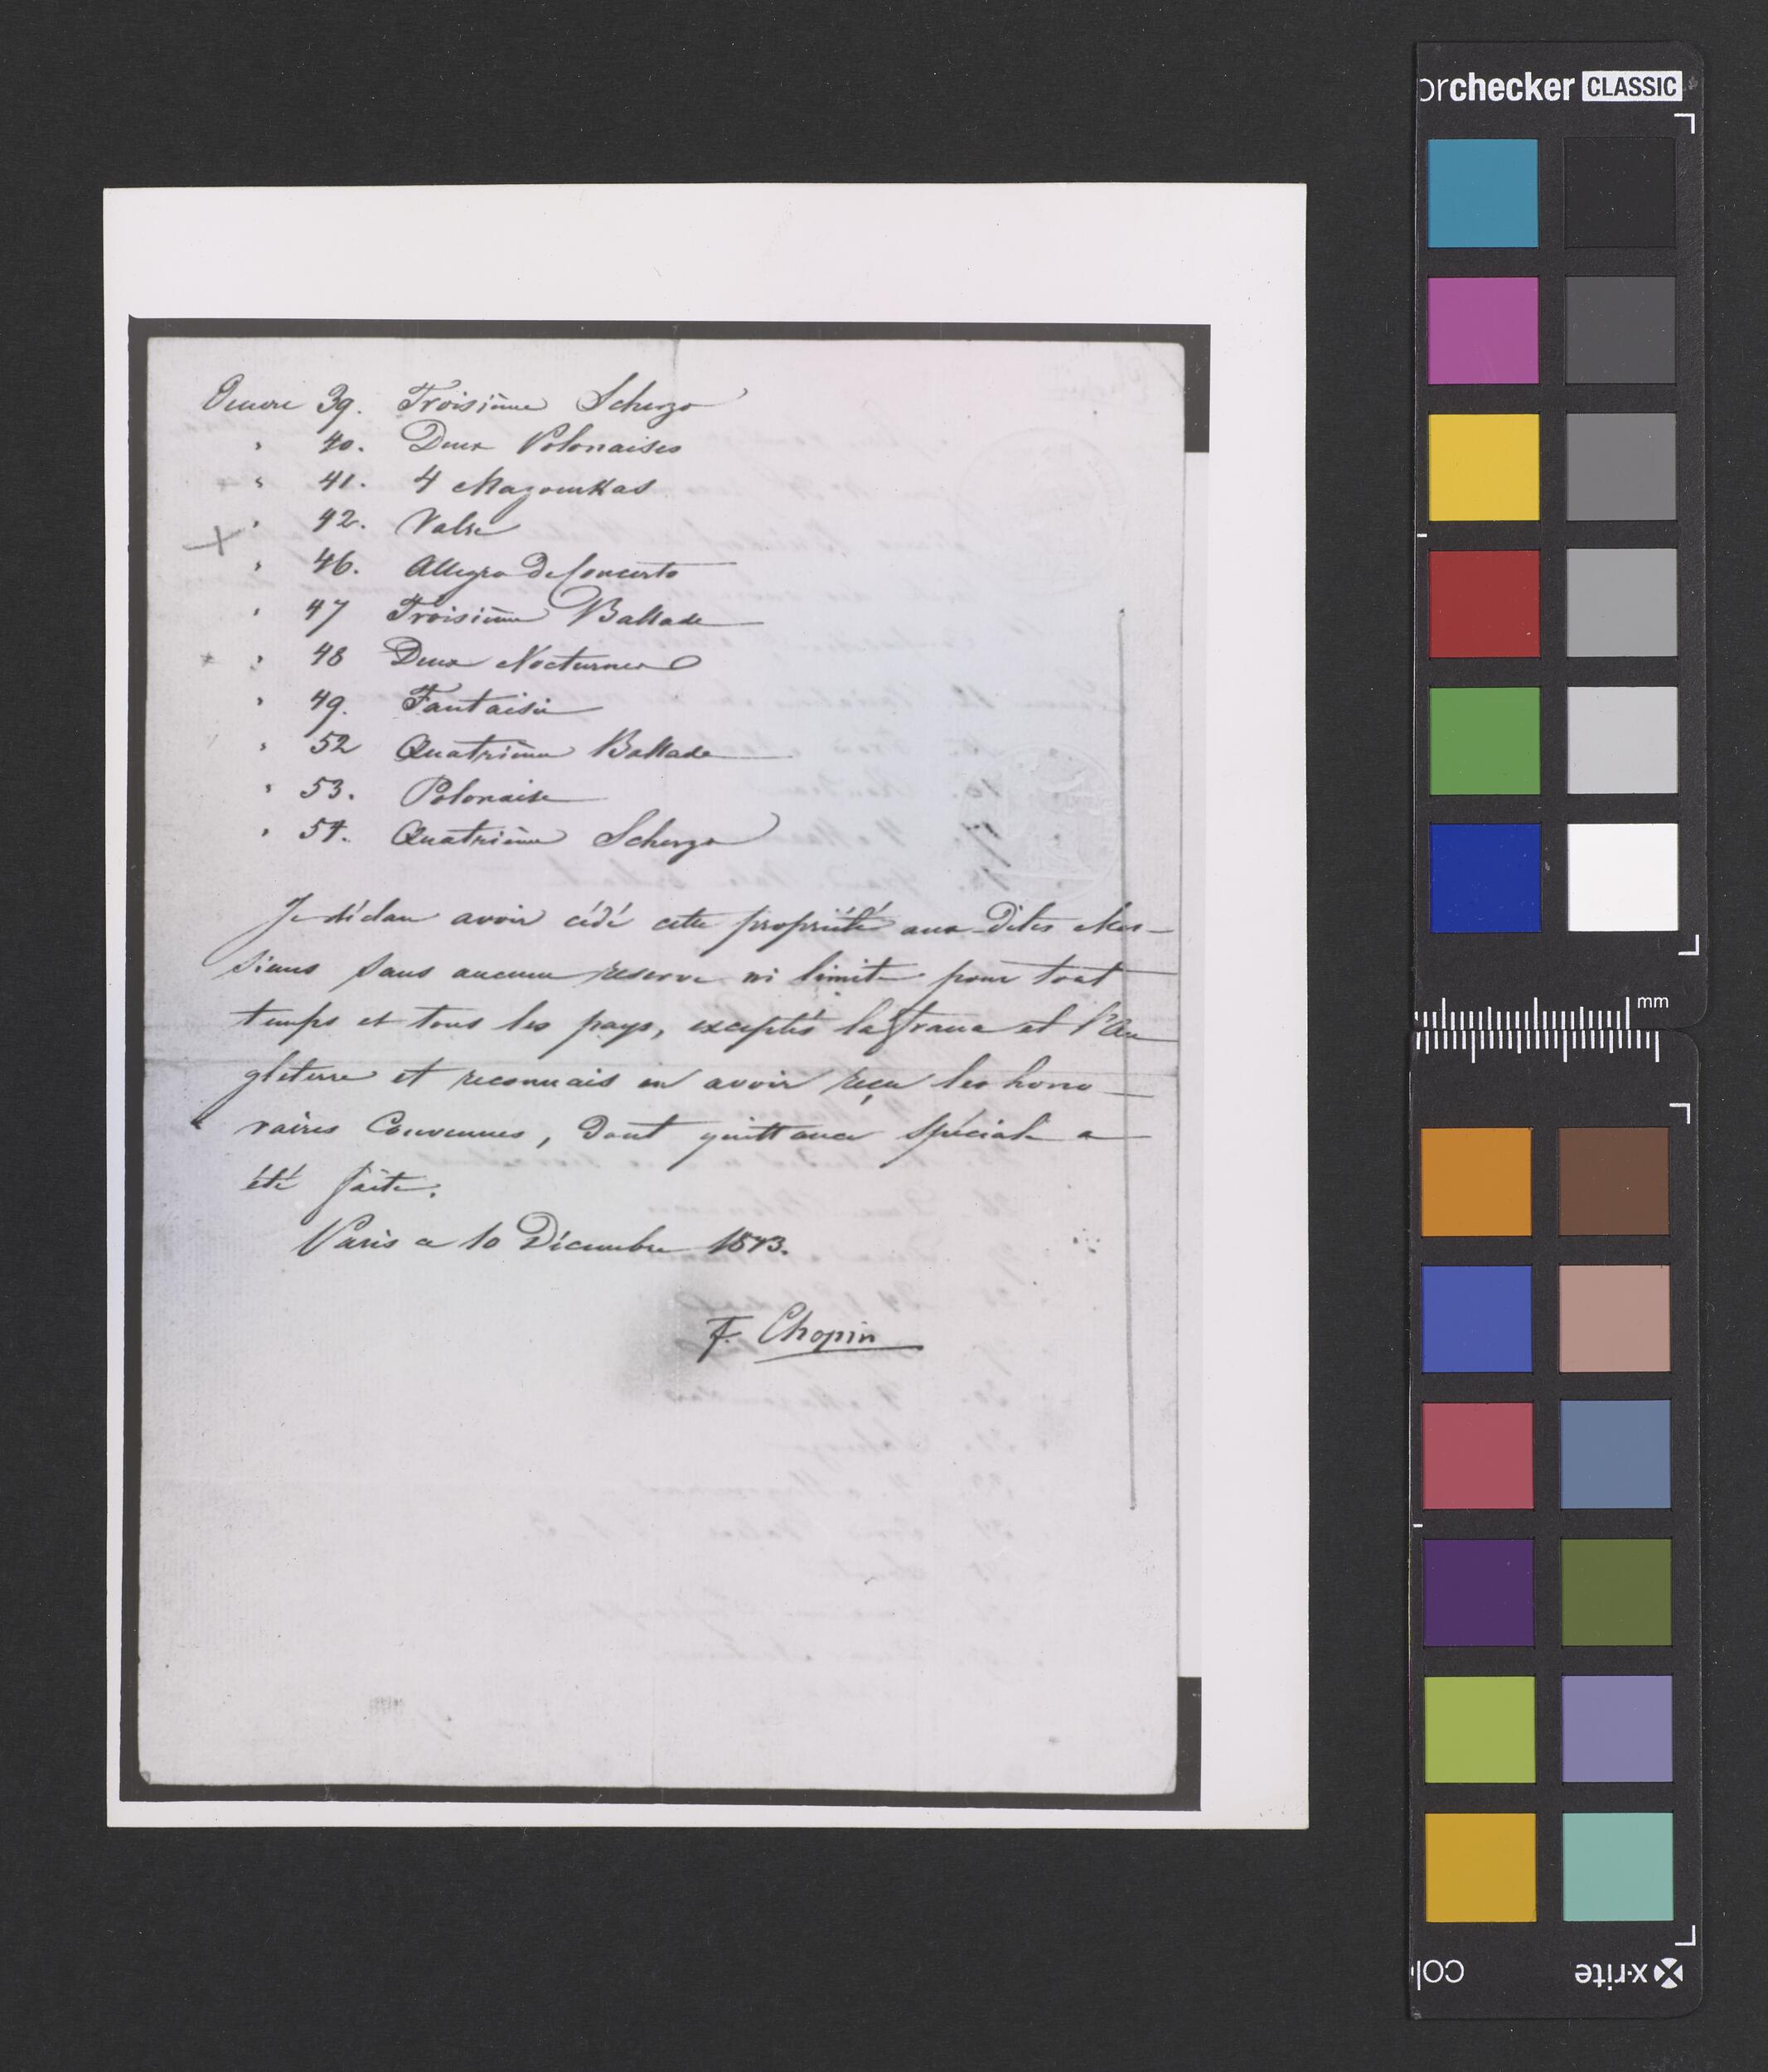 Oeuvre 39. Troisième Scherzo
" 40. Deux Polonaises
" 41. 4 Mazourkas
" 42. Valse
" 46. Allegro de Concerto
" 47 Troisième Ballade
" 48 Deux Nocturnes
" 49. Fantaisie
" 52 Quatrième Ballade
" 53. Polonaise
" 54. Quatrième Scherzo
Je déclare avoir cédé cette propriété aux-Dites Mes-
sieurs sans aucune réserve ni limite pour tout
temps et tous les pays, exceptés la France et l'An
gleterre et reconnais en avoir reçu les hono-
raires Convenues, Dont quittance spéciale a
été faite.
Paris ce 10 Décembre 1843.
F. Chopin
orchecker CLASSIC
mm
x-rite
col